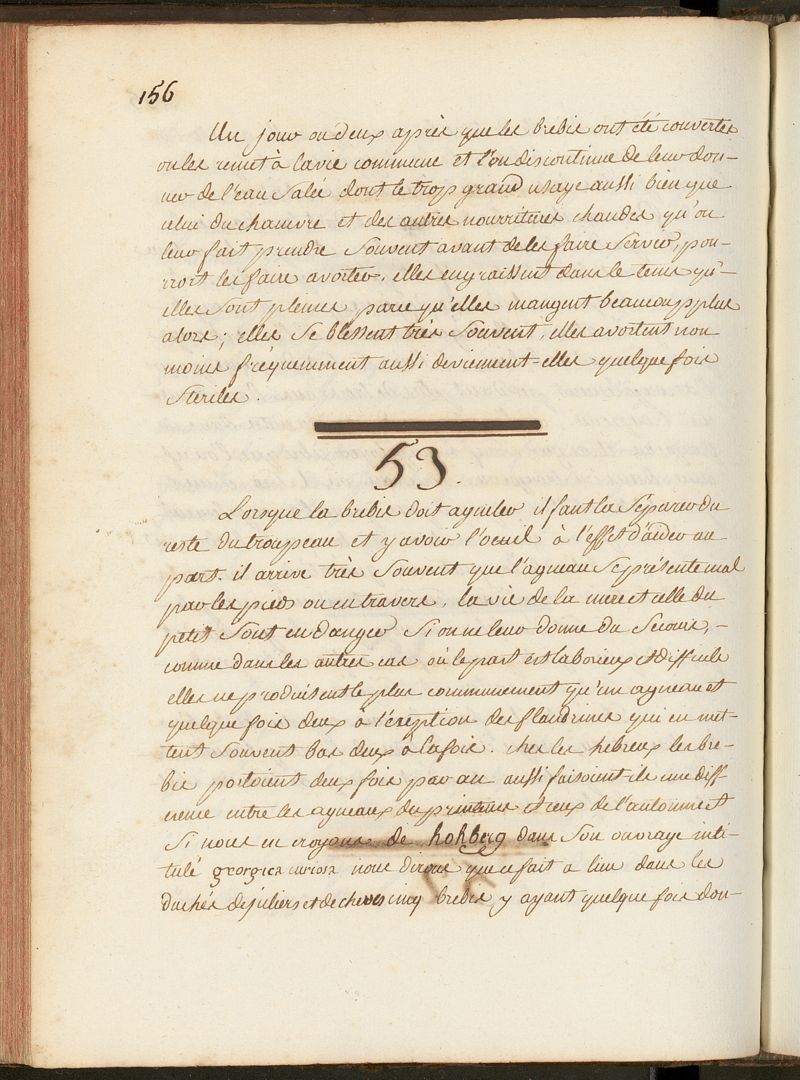 156
Un jour ou deux après que les brebis ont été couvertes
on les remet à la vie commune et l'on discontinue de leur don-
ner de l'eau salée dont le trop grand usage aussi bien que
celui du chanvre et des autres nourritures chaudes qu'on
leur fait prendre souvent avant de les faire servir, pou-
rroit les faire avorter. elles engraissent dans le tems qu'-
elles sont pleines parce qu'elles mangent beaucoup plus
alors; elles se blessent très souvent, elles avortent non
moins fréquemment aussi deviennent-elles quelque fois
steriles.
53.
Lorsque la brebis doit agneler il faut la séparer du
reste du troupeau et y avoir l'oeuil à l'effet d'aider au
part. il arrive très souvent que l'agneau se présente mal
par les pied ou en travers, la vie de la mere et celle du
petit sont en danger si on ne leur donne du secours, -
comme dans les autres cas où le part est laborieux et difficile
elles ne produisent le plus communement qu'un agneau et
quelque fois deux à l'éxeption des flandrines qui en met-
tent souvent bas deux à la fois. chez les hébreux les bre-
bis portoient deux fois par an aussi faisoient-ils une diff-
rence entre les agneaux du printems et ceux de l'automne et
si nous en croyons de hohberg dans son ouvrage inti-
tulé georgica curiosa nous dirons que ce fait a lieu dans les
duchés de juliers et de cleves cinq brebis y ayant quelque fois don-